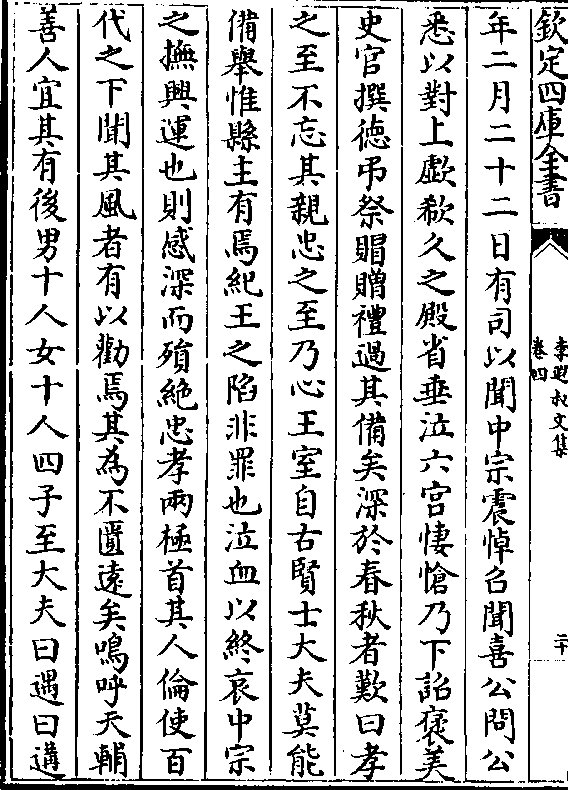 欽定四庫全書
李遐叔文集
卷四
二十
年二月二十二日有司以聞中宗震悼召聞喜公問公
悉以對上歔欷久之殿省垂泣六宫悽愴乃下詔褒美
史官撰徳弔祭賵贈禮過其備矣深於春秋者歎曰孝
之至不忘其親忠之至乃心王室自古賢士大夫莫能
備舉惟縣主有焉紀王之陷非罪也泣血以終哀中宗
之撫興運也則感深而殞絶忠孝兩極首其人倫使百
代之下聞其風者有以勸焉其為不匱遠矣嗚呼天輔
善人宜其有後男十人女十人四子至大夫曰遇曰遘